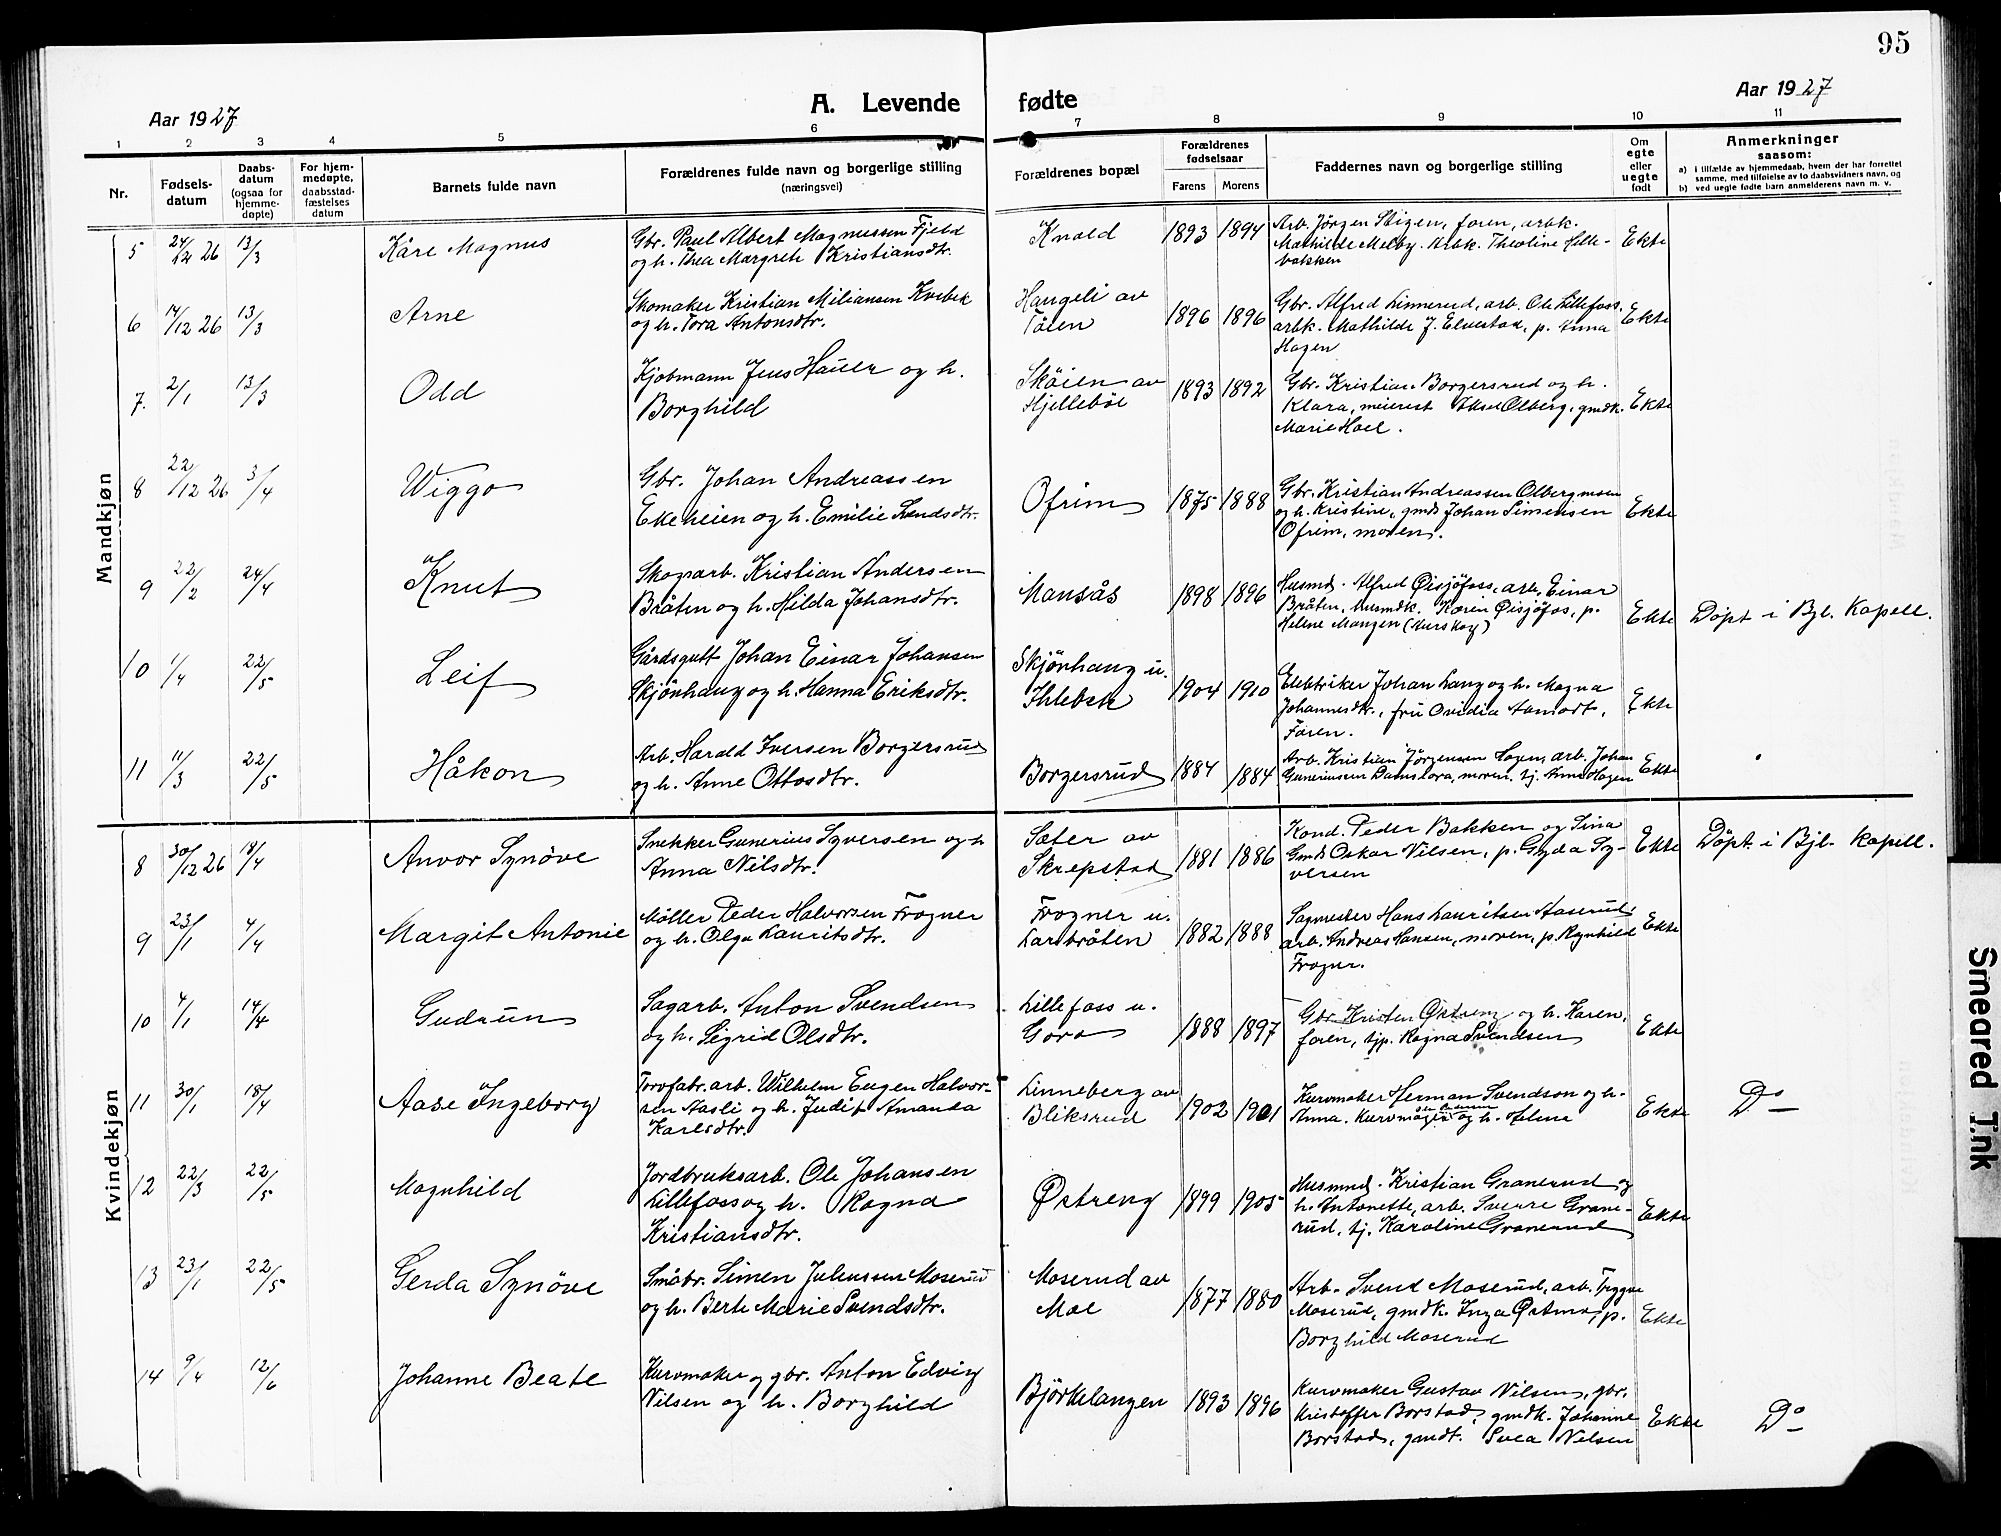 95
Aar 1927
A. Levende fødte
Aar 1927
1 2 3 4 5 6 7 8 9 10 11
Nr.
Fødsels-
datum
Daabs-
datum
(ogsaa for
hjemme-
døpte)
For hjem-
medøpte,
daabsstad-
fæstelses
datum
Barnets fulde navn
Forældrenes fulde navn og borgerlige stilling
(næringsvei)
Forældrenes bopæl
Forældrenes
fødselsaar
Farens Morens
Faddernes navn og borgerlige stilling
Om
egte
eller
uegte
født
Anmerkninger
saasom:
a) i tilfælde av hjemmedaab, hvem der har forrettet
samme, med tilføielse av to daabsvidners navn, og
b) ved uegte fødte barn anmelderens navn m. v.
Mandkjøn
5 24/12 26 13/3 Kåre Magnus
Gbr. Paul Albert Magnussen Fjeld
og h. Thea Margreth Kristiansdtr.
Knold 1893 1894
Arb. Jørgen Stigen, faren, arbk.
Mathilde Melby. Arbk. Theoline Lille-
bakken
Ekte
6 14/12 26 13/3 Arne
Skomaker Kristian Miliansen Kvebek
og h. Tora Antonsdtr.
Haugeli av
Tøien
1896 1896
Gbr. Alfred Linnerud, arb. Ole Lillefoss,
arbk. Mathilde J. Elvestad, p. Anna
Hagen
Ekte
7. 2/1 13/3 Odd
Kjøbmann Jens Hauer og h.
Borghild
Skøien av
Hjellebøl
1893 1892
Gbr. Kristian Borgersrud og h.
Klara, meierest Aksel Olberg, gmdk.
Marie Hoel.
Ekte
8 22/12 26 3/4 Wiggo
Gbr. Johan Andreassen
Ekeheien og h. Emilie Lendsdtr.
Ofrim 1875 1888
Gbr. Kristian Andreassen Olberg moen
og h. Kristine, gmd. Johan Simensen
Ofrim, moren.
Ekte
9 22/2 24/4 Knut
Skogarb. Kristian Andersen
Bråten og h. Hilda Johansdtr.
Mansås 1898 1896
Husmd. Alfred Øisjøfoss, arb. Einar
Bråten, husmdk. Karen Øisjøfos, p.
Helene Mangen (Aurskog)
Ekte
Døpt i Bjl. Kapell.
10 1/4 22/5 Leif
Gårdsgutt Johan Einar Johansen
Skjønhaug og h. Hanna Eriksdtr.
Skjønhaug u.
Ihlebek
1904 1910
Elektriker Johan Lang og h. Magna
Johannesdtr., fru Ovidia Aamodt,
Faren.
Ekte
11 11/3 22/5 Håkon
Arb. Harald Iversen Borgersrud
og h. Anne Ottosdtr.
Borgersrud 1884 1884
Arb. Kristian Jørgensen Hagen, arb. Johan
Gunerius Damslora, moren. tj. Anna Hagen
Ekte
Kvindekjøn
8 30/12 26 18/4 Anvor Synøve
Snekker Gunerius Syversen og h
Anna Nilsdtr.
Sæter av
Skrepstad
1881 1886
Kond. Peder Bakken og Sina
Gmd. Oskar Nilsen, p. Gyda Sy-
versen
Ekte
Døpt i Bjl. Kapell.
9 23/1 4/4 Margit Antonie
Møller Peder Halvorsen Frogner
og h. Olga Lauritsdtr.
Frogner u.
Larbråten
1882 1888
Sagmester Hans Lauritsen Aaserud
arb. Andreas Hansen, moren, p. Ragnhild
Frogner.
Ekte
10 4/1 14/4 Gudrun
Sagarb. Anton Svendsen
og h. Sigrid Olsdtr.
Lillefoss u.
Gora
1888 1897
Gbr. Kristen Østreng og h. Karen,
faren, tjp. Ragna Svendsen
Ekte
11 30/1 18/4 Aase Ingeborg
Torvfabr. arb. Wilhelm Eugen Halvor-
sen Aasli og h. Judit Amanda
Karlsdtr.
Linneberg av
Bliksrud
1902 1901
Kurvmaker Herman Svendson og h.
Anna. Kurvmager og h. Helene
Ekte
Do
12 22/3 22/5 Magnhild
Jordbruksarb. Ole Johansen
Lillefoss og h. Ragna
Kristiansdtr.
Østreng 1899 1905
Husmnd. Kristian Granerud og
h. Antonette, arb. Sverre Grane-
rud, tj. Karoline Granerud
Ekte
13 23/1 22/5 Gerda Synøve
Småbr. Simen Juliussen Moserud
og h. Berte Marie Svendsdtr.
Moserud av
Moe
1877 1880
Arb. Svend Moserud, arb. Trygve
Moserud, gmdk. Inga Østmo, p.
Borghild Moserud
Ekte
14 9/4 12/6 Johanne Beate
Kurvmaker og gbr. Anton Edvin
Nilsen og h. Borghild
Bjørkelangen 1893 1896
Kurvmaker Gustav Nilsen, gbr.
Kristoffer Borstad, gmdk. Johanne
Borstad, gmdt. Svea Nilsen
Ekte
Do
Smeared T.nk